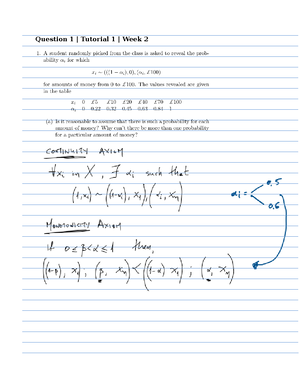 Question 1 | Tutorial 1 | Week 2
1. A student randomly picked from the class is asked to reveal the prob-
ability αᵢ for which
xᵢ ~ (((1 − αᵢ), 0), (αᵢ, £100)
for amounts of money from 0 to £100. The values revealed are given
in the table
xᵢ 0 £5 £10 £20 £40 £70 £100
αᵢ 0 0.22 0.32 0.45 0.63 0.84 1
(a) Is it reasonable to assume that there is such a probability for each
amount of money? Why can't there be more than one probability
for a particular amount of money?
CONTINUITY AXIOM
∀xᵢ in X, ∃ αᵢ such that
(1, xᵢ) ~ ((1-αᵢ), x₁), (αᵢ, xₘ)
αᵢ = 0,5
0,6
MONOTONICITY AXIOM
if 0 ≤ β < α ≤ 1 then,
((1-β), x₁); (β, xₘ) ≺ ((1-α) x₁); (α, xₘ)